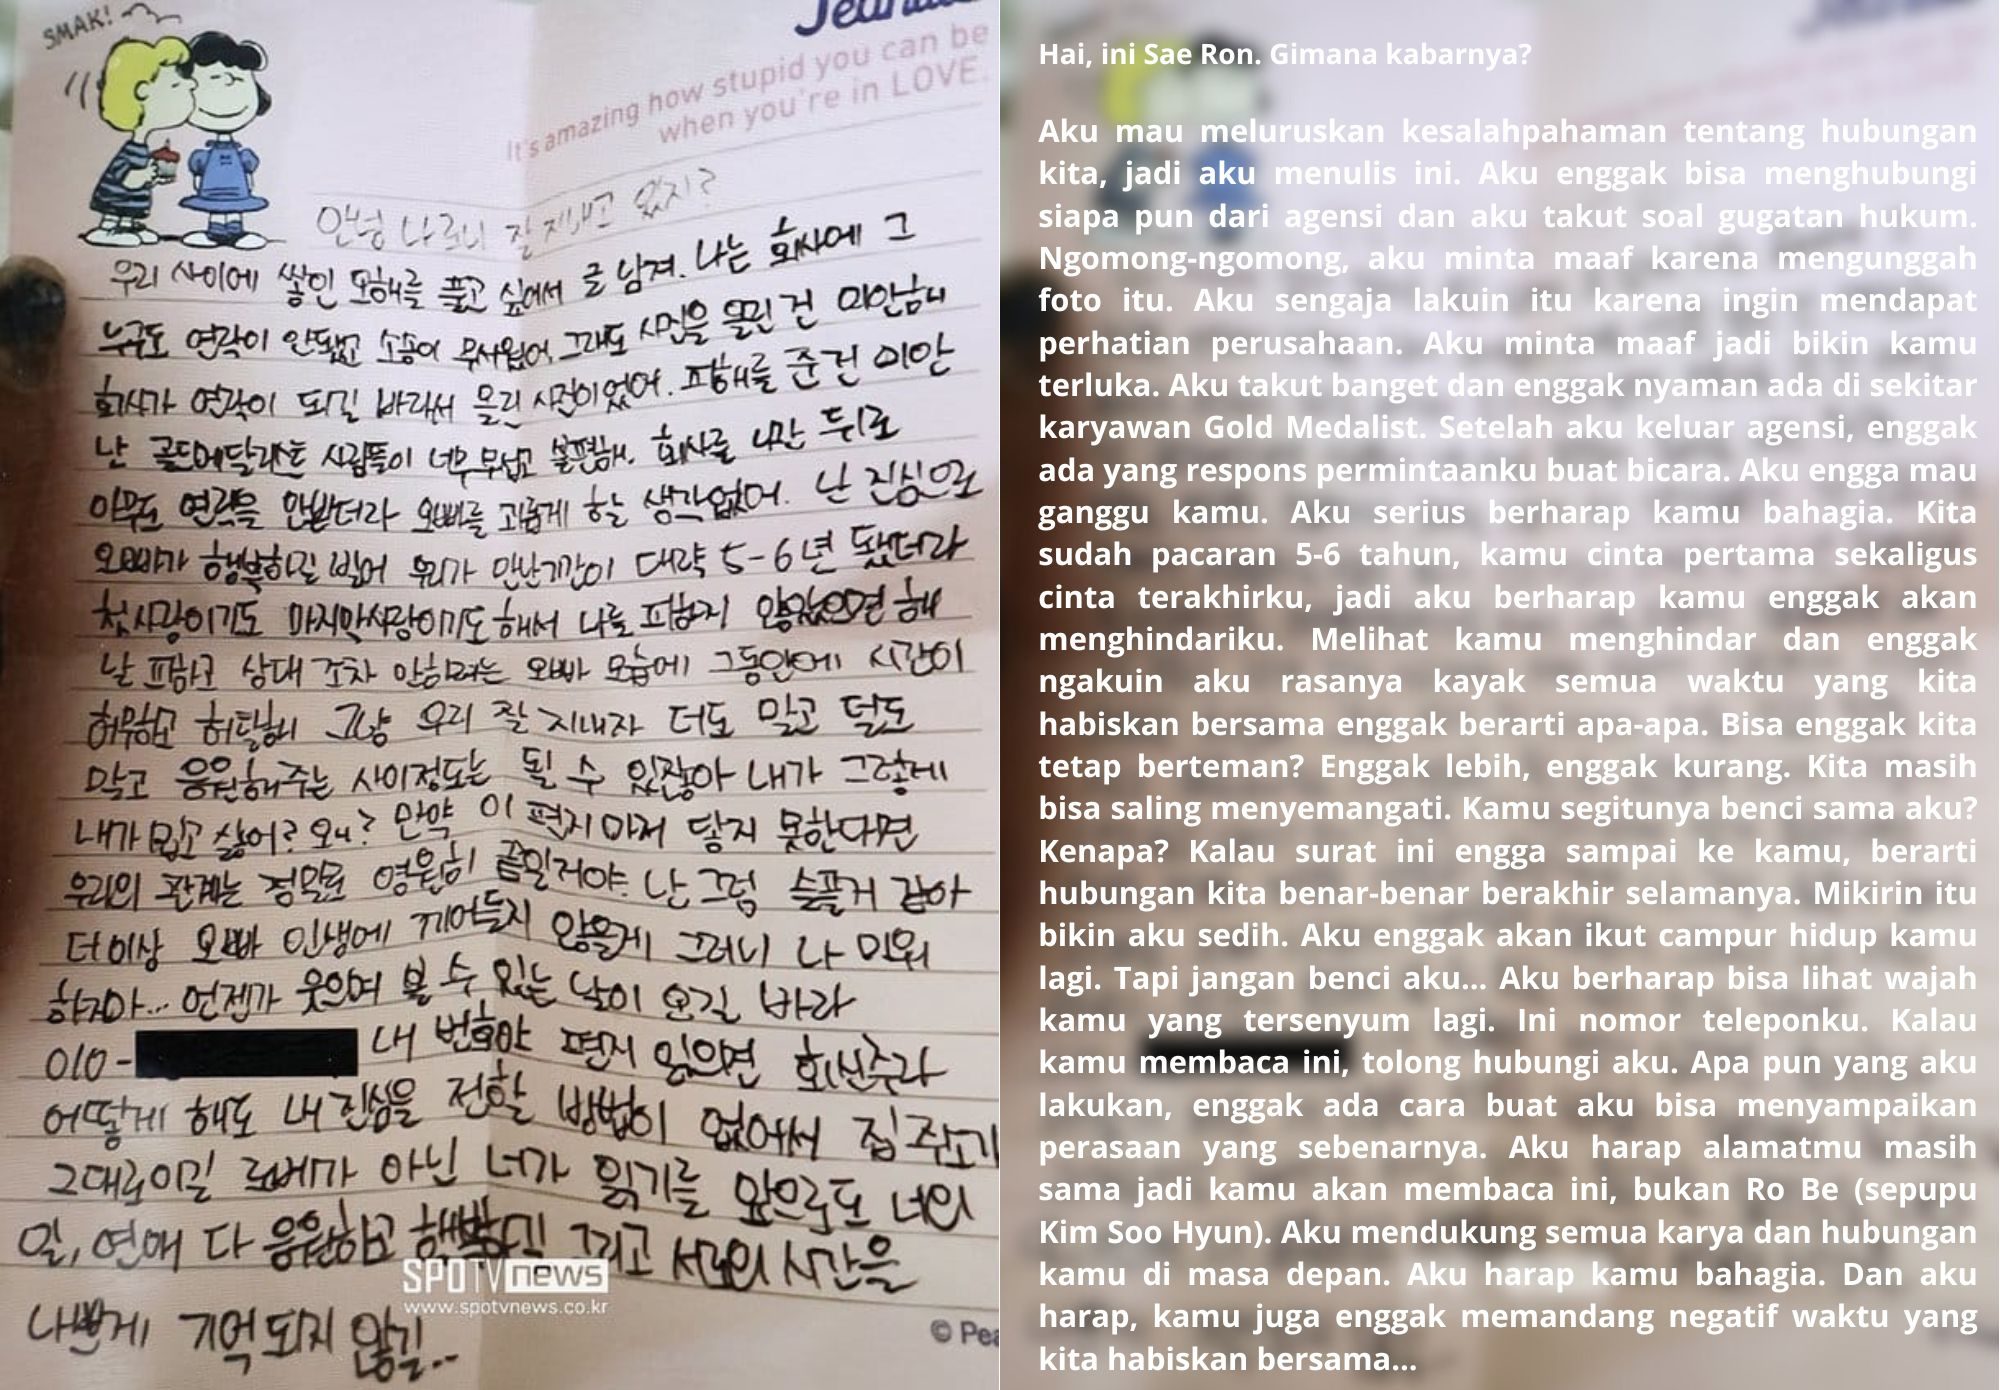 SMAK!
It's amazing how stupid you can be
when you're in LOVE.
안녕 나 로니 잘 지내고 있지?
우리 사이에 쌓인 오해를 풀고 싶어서 글 남겨. 나는 회사에 그
누구도 연락이 안됐고 소송이 무서웠어. 그래도 사진을 올린 건 미안해
회사가 연락이 되길 바라서 올린 사진이었어. 피해를 준건 미안
난 골드메달리스트 사람들이 너무 무섭고 불편해. 회사를 나간 뒤로
아무도 연락을 안받더라 오빠를 괴롭게 할 생각없어. 난 진심으로
오빠가 행복하길 빌어 우리가 만난기간이 대략 5-6년 됐더라
첫사랑이기도 마지막사랑이기도 해서 나를 피하지 않았으면 해
날 피하고 상대 조차 안하려는 오빠 모습에 그동안에 시간이
허무하고 허탈해 그냥 우리 잘 지내자 더도 말고 덜도
말고 응원해주는 사이정도는 될 수 있잖아 내가 그렇게
내가 밉고 싫어? 왜? 만약 이 편지마저 닿지 못한다면
우리의 관계는 정말로 영원히 끝일거야. 난 그럼 슬플거 같아
더이상 오빠 인생에 끼어들지 않을게 그러니 나 미워
하지마... 언젠가 웃으며 볼 수 있는 날이 오길 바라
010- 내 번호야 편지 읽으면 회신주라
어떻게 해도 내 진심을 전할 방법이 없어서 집 주소가
그대로이길 로베가 아닌 너가 읽기를 앞으로도 너의
일, 연애 다 응원하고 행복하길 그리고 서로의 시간을
나쁘게 기억되지 않길...
SPOTV news
www.spotvnews.co.kr
© Pea
Hai, ini Sae Ron. Gimana kabarnya?
Aku mau meluruskan kesalahpahaman tentang hubungan
kita, jadi aku menulis ini. Aku enggak bisa menghubungi
siapa pun dari agensi dan aku takut soal gugatan hukum.
Ngomong-ngomong, aku minta maaf karena mengunggah
foto itu. Aku sengaja lakuin itu karena ingin mendapat
perhatian perusahaan. Aku minta maaf jadi bikin kamu
terluka. Aku takut banget dan enggak nyaman ada di sekitar
karyawan Gold Medalist. Setelah aku keluar agensi, enggak
ada yang respons permintaanku buat bicara. Aku engga mau
ganggu kamu. Aku serius berharap kamu bahagia. Kita
sudah pacaran 5-6 tahun, kamu cinta pertama sekaligus
cinta terakhirku, jadi aku berharap kamu enggak akan
menghindariku. Melihat kamu menghindar dan enggak
ngakuin aku rasanya kayak semua waktu yang kita
habiskan bersama enggak berarti apa-apa. Bisa enggak kita
tetap berteman? Enggak lebih, enggak kurang. Kita masih
bisa saling menyemangati. Kamu segitunya benci sama aku?
Kenapa? Kalau surat ini engga sampai ke kamu, berarti
hubungan kita benar-benar berakhir selamanya. Mikirin itu
bikin aku sedih. Aku enggak akan ikut campur hidup kamu
lagi. Tapi jangan benci aku... Aku berharap bisa lihat wajah
kamu yang tersenyum lagi. Ini nomor teleponku. Kalau
kamu membaca ini, tolong hubungi aku. Apa pun yang aku
lakukan, enggak ada cara buat aku bisa menyampaikan
perasaan yang sebenarnya. Aku harap alamatmu masih
sama jadi kamu akan membaca ini, bukan Ro Be (sepupu
Kim Soo Hyun). Aku mendukung semua karya dan hubungan
kamu di masa depan. Aku harap kamu bahagia. Dan aku
harap, kamu juga enggak memandang negatif waktu yang
kita habiskan bersama...